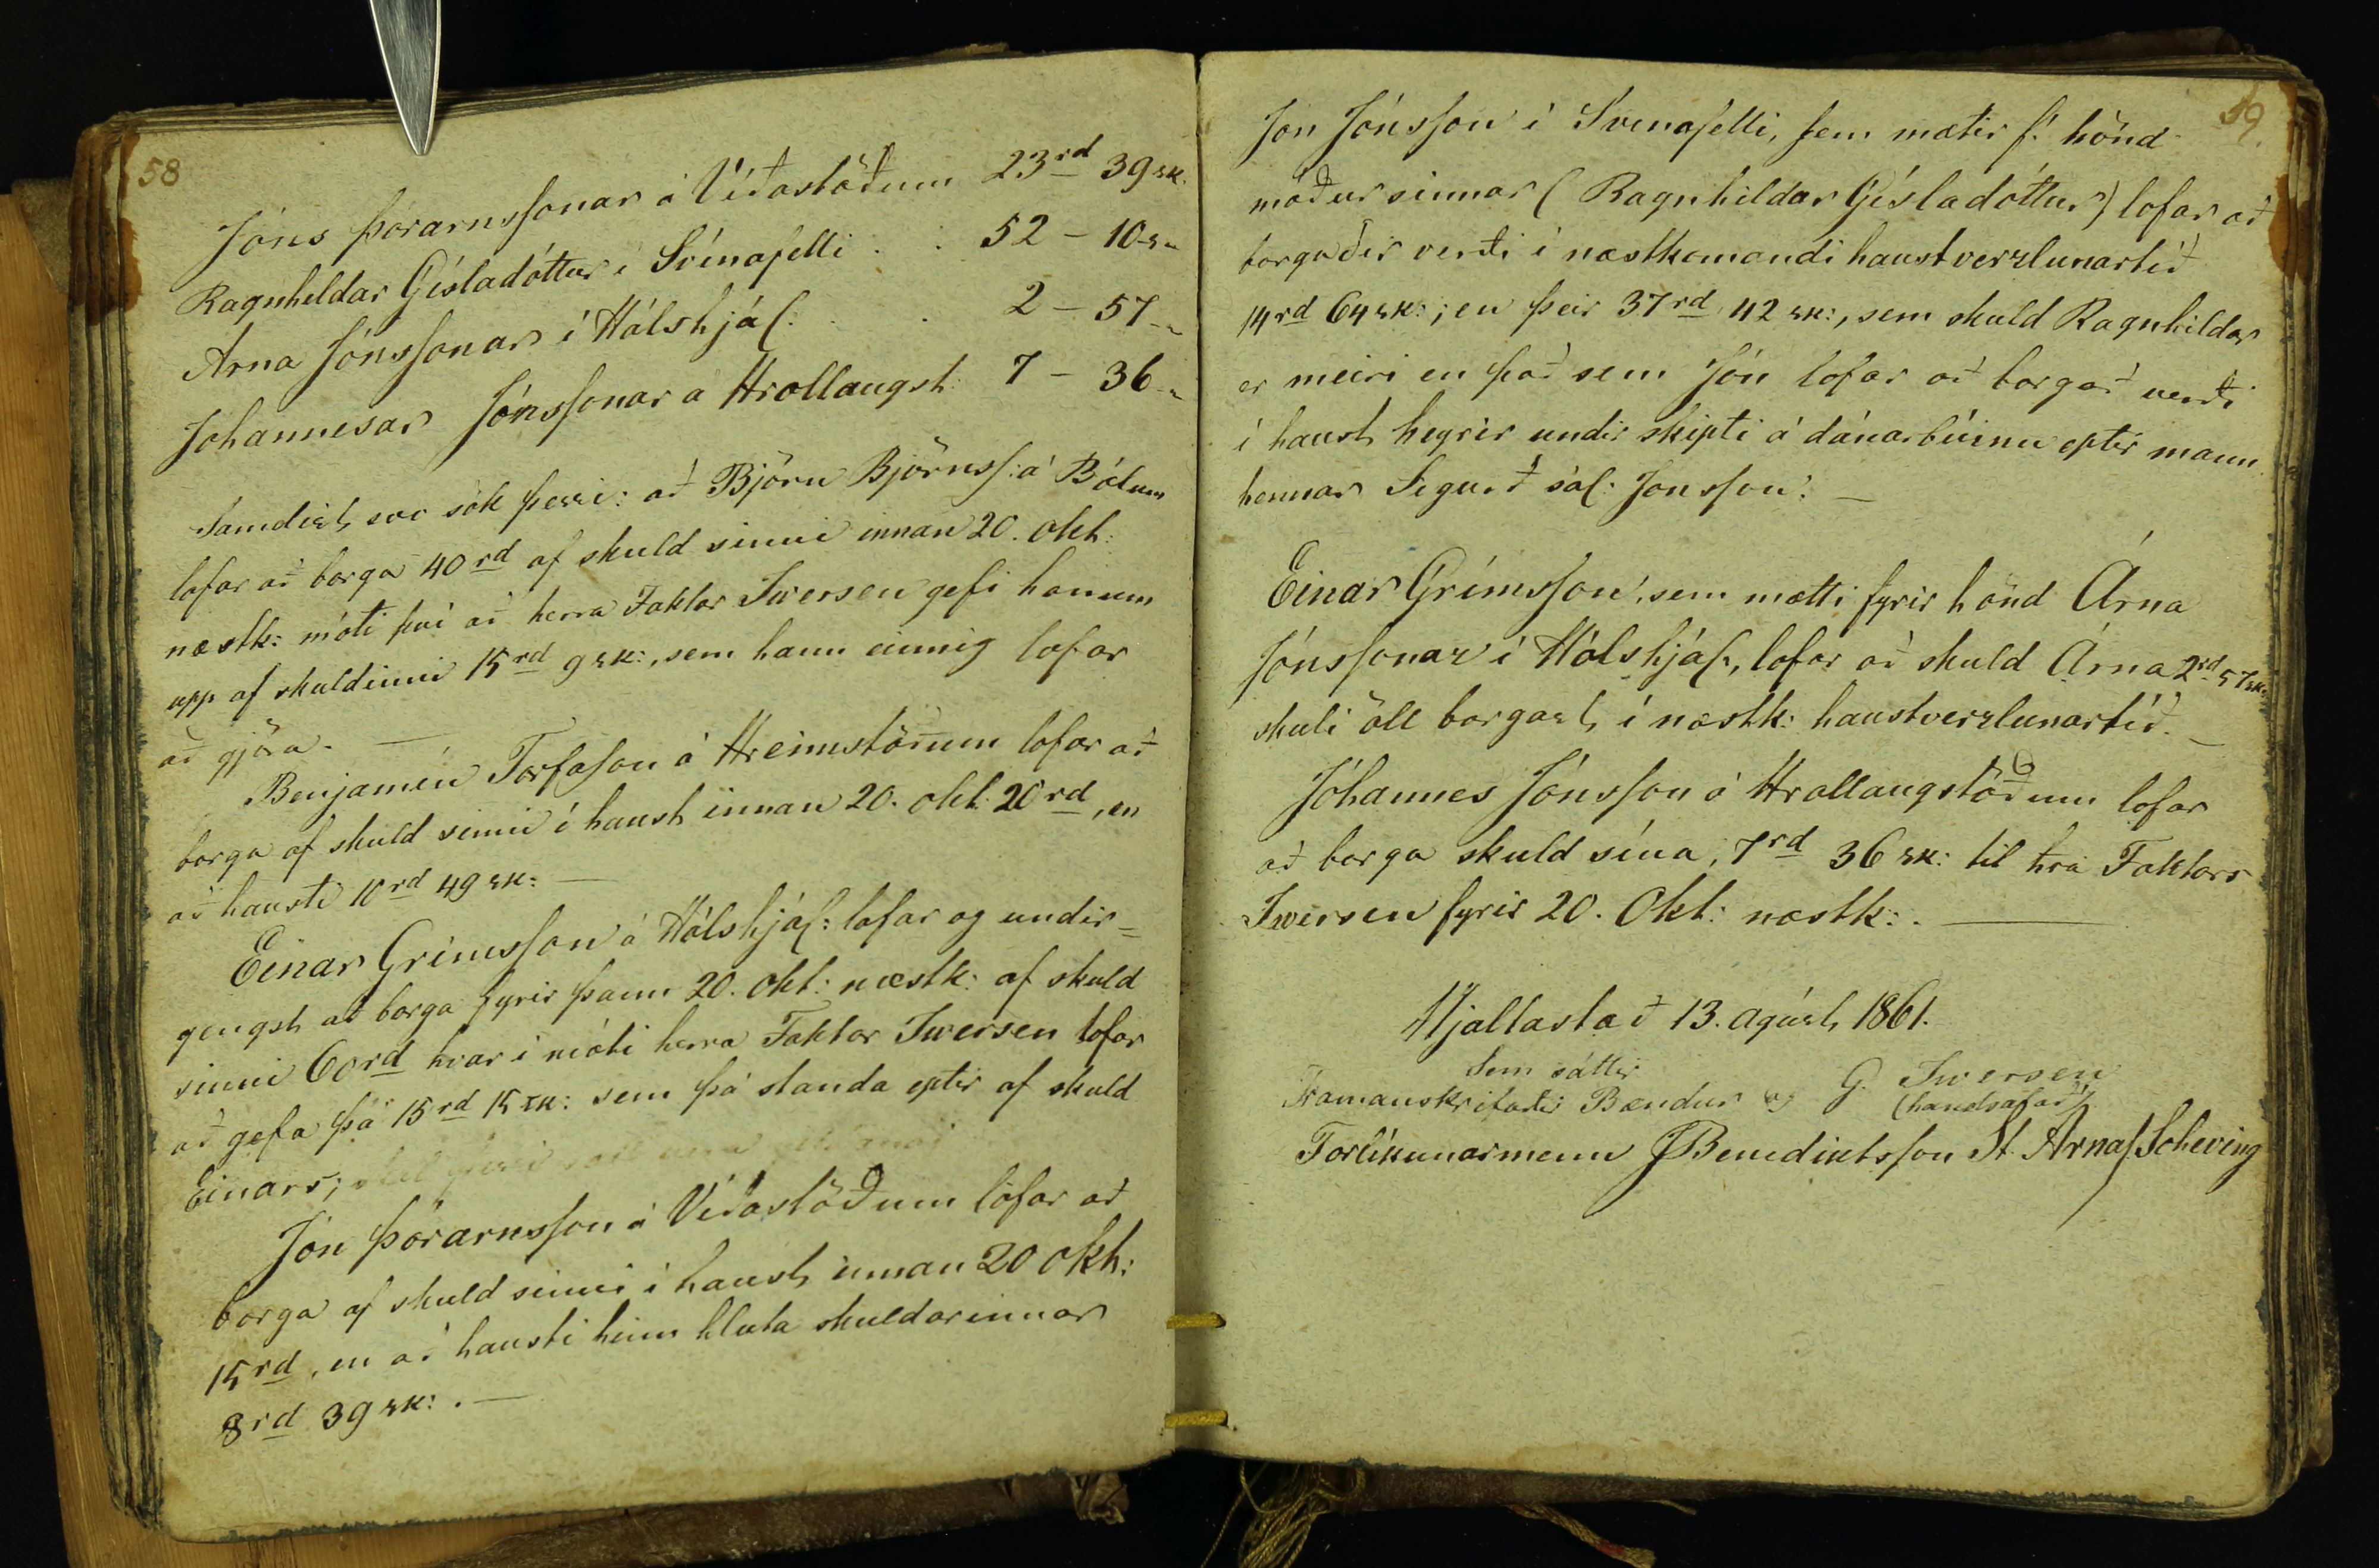 58
Jóns Þórarnssonar á Víðastöðum 23rd 39 sk.
Ragnheldar Gísladóttur í Svínafelli . . 52 – 10 - "
Arna Jónssonar í Hólshjál. . . 2 – 57 - "
Johannesar Jónssonar a Hrollaugst: 7 – 36 - "
Samdist svo sök þessi: að Björn Björnss: á Bólum
lofar að borga 40rd af skuld sinni innan 20. okt:
næstk: móti því að herra Faktor Iwersen gefi honum
upp af skuldinni 15rd 9 sk:, sem hann einnig lofar
að gjöra. —
Benjamín Torfason á Hreimstöðum lofar að
borga af skuld sinni í haust innan 20. okt: 20rd, en
að hausti 10rd 49 sk: —
Einar Grímsson á Hólshjál: lofar og undir=
gengst að borga fyrir þann 20. okt: næstk: af skuld
sinni 60rd hvar í móti herra Faktor Iwersen lofar
að gefa þá 15rd 15 sk: sem þá standa eptir af skuld
Einars;
Jón Þórarnsson á Víðastöðum lofar að
borga af skuld sinni í haust innan 20 okt:
15rd, en að hausti hinn hluta skuldarinnar
8rd 39 sk: . —
59.
Jón Jónsson í Svínafelli, sem mætir f. hönd
móður sinnar (Ragnhildar Gísladóttur) lofar að
borgaðir verði í næstkomandi haustverzlunartíð
14rd 64 sk:; en þeir 37rd, 42 sk:, sem skuld Ragnhildar
er meiri en það sem Jón lofar að borgað verði
í haust heyrir undir skipti á dánarbúinu eptir mann
hennar Sigurð sál: Jónsson. —
Einar Grímsson, sem mætti fyrir hönd Árna
Jónssonar í Hólshjál:, lofar að skuld Árna 2rd 57 sk:
skuli öll borgast í næstk: haustverzlunartíð. —
Jóhannes Jónsson á Hrollaugstöðum lofar
að borga skuld sína, 7rd 36 sk: til hra Faktors
Iwersen fyrir 20. Okt: næstk: . —
Hjaltastað 13. agúst 1861.
Sem sáttir
Framanskrifaðir Bændur og G. Iwersen
(handsalað)
Forlíkunarmenn JBenediktsson St. Árnas. Scheving